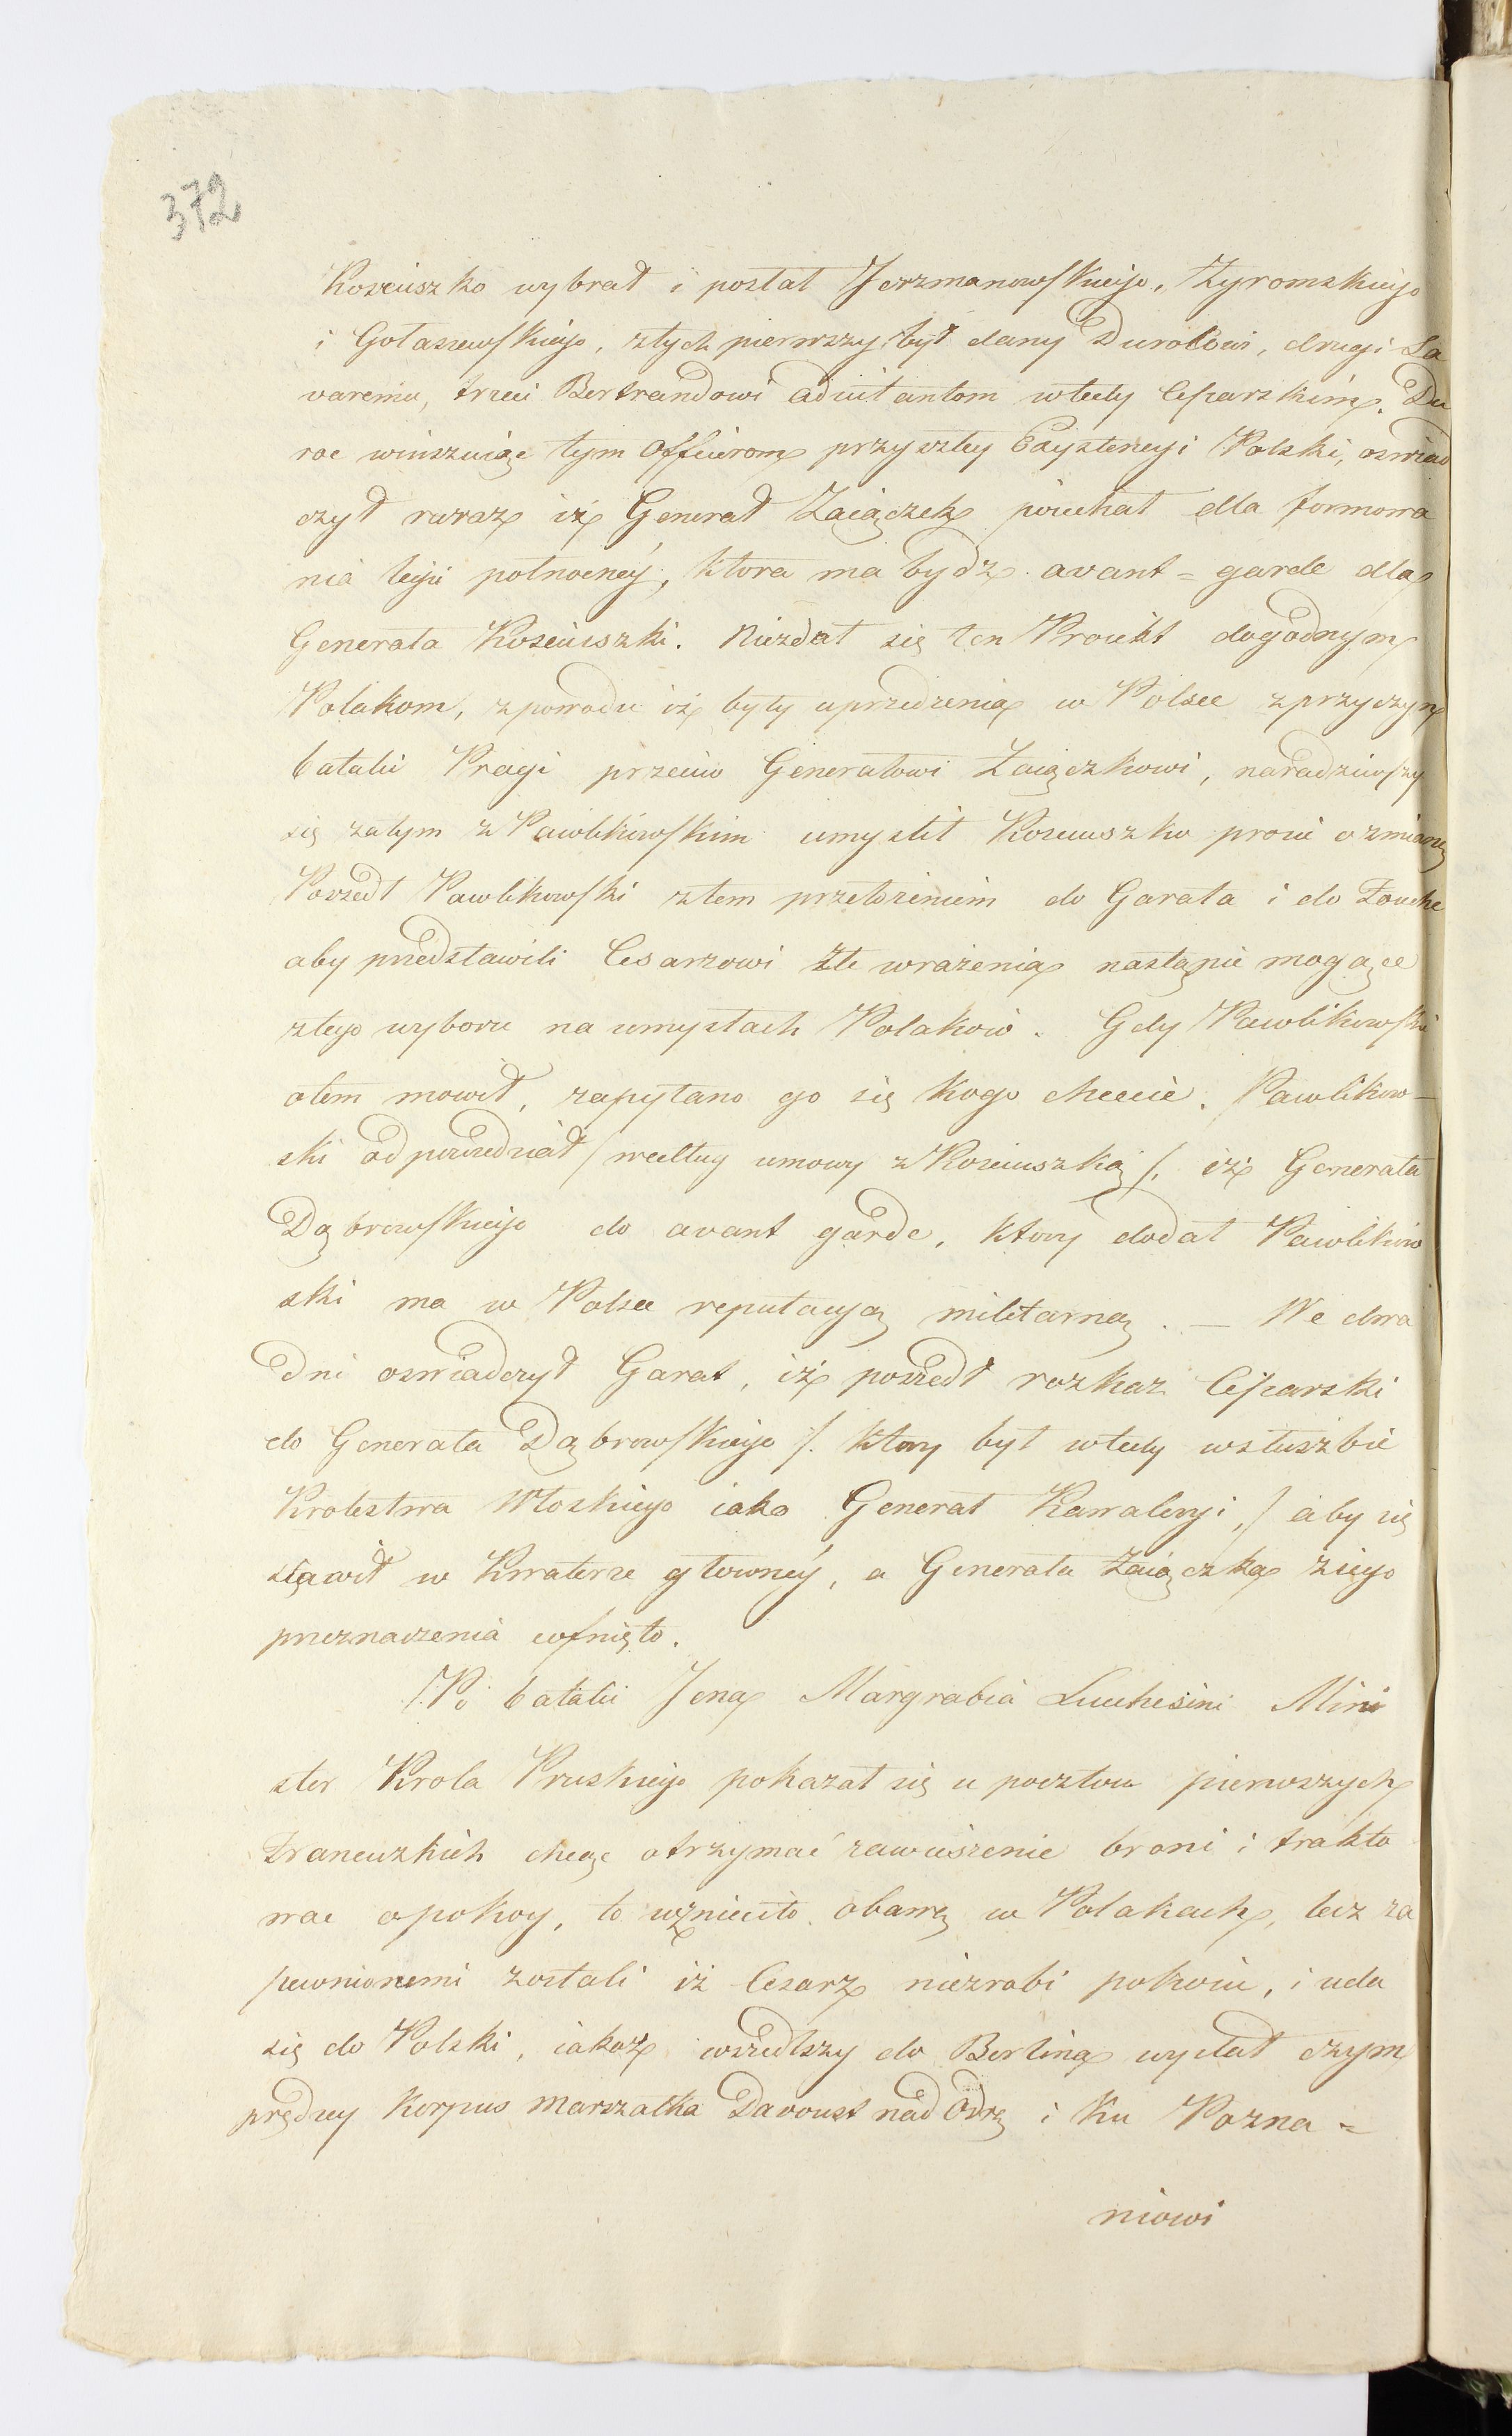 372
Kosciuszko wybrał i posłał Jerzmanowskiego, Żyromskiego
i Gołaszewskiego, ztych pierwszy był dany Durokowi, drugi Sa
varemu, trzeci Bertrandowi adiutantom wtedy Cesarskim. Du
roc winszuiąc tym Officierom przyszłey Exystencyi Polski, oswiad
czył wraz iż Generał Zaiączek poiechał dla formowa
nia legii połnocney, ktora ma bydz avant=garde dla
Generała Kosciuszki. Niezdał się ten Proiekt dogodnym
Polakom, zpowodu iż były uprzedzenia w Polsce zprzyczyny
batalii Pragi przeciw Generałowi Zaiączkowi, naradziwszy
się zatym z Pawlikowskim umyslił Kosciuszko prosić ozmianę
Poszedł Pawlikowski ztem przełożeniem do Garata i do Fouche
aby przedstawili Cesarzowi złe wrażenia nastąpić mogące
ztego wyboru na umysłach Polakow. Gdy Pawlikowski
otem mowił, zapytano go się kogo chcecie. Pawlikow-
ski odpowiedział / według umowy z Kosciuszką /, iż Generała
Dąbrowskiego do avant garde, ktory dodał Pawlikow
ski ma w Polsce reputacyą militarną. — We dwa
dni oswiadczył Garat, iż poszedł rozkaz Cesarski
do Generała Dąbrowskiego /. ktory był wtedy wsłuszbie
Krolestwa Włoskiego iako Generał Kawaleryi, / aby się
stawił w Kwaterze głowney, a Generała Zaiączka ziego
przeznaczenia cofnięto.
/Po batalii Jena Margrabia Lucchesini Mini
ster Krola Pruskiego pokazał się u pocztow pierwszych
Francuzkich chcąc otrzymać zawieszenie broni i trakto
wac opokoy, to wznieciło obawę w Polakach, lecz za
pewnionemi zostali iż Cesarz niezrobi pokoiu, i uda
się do Polski, iakoż wszedłszy do Berlina wysłał czym
prędzey Korpus Marszałka Davoust nad Odrę i ku Pozna=
niowi